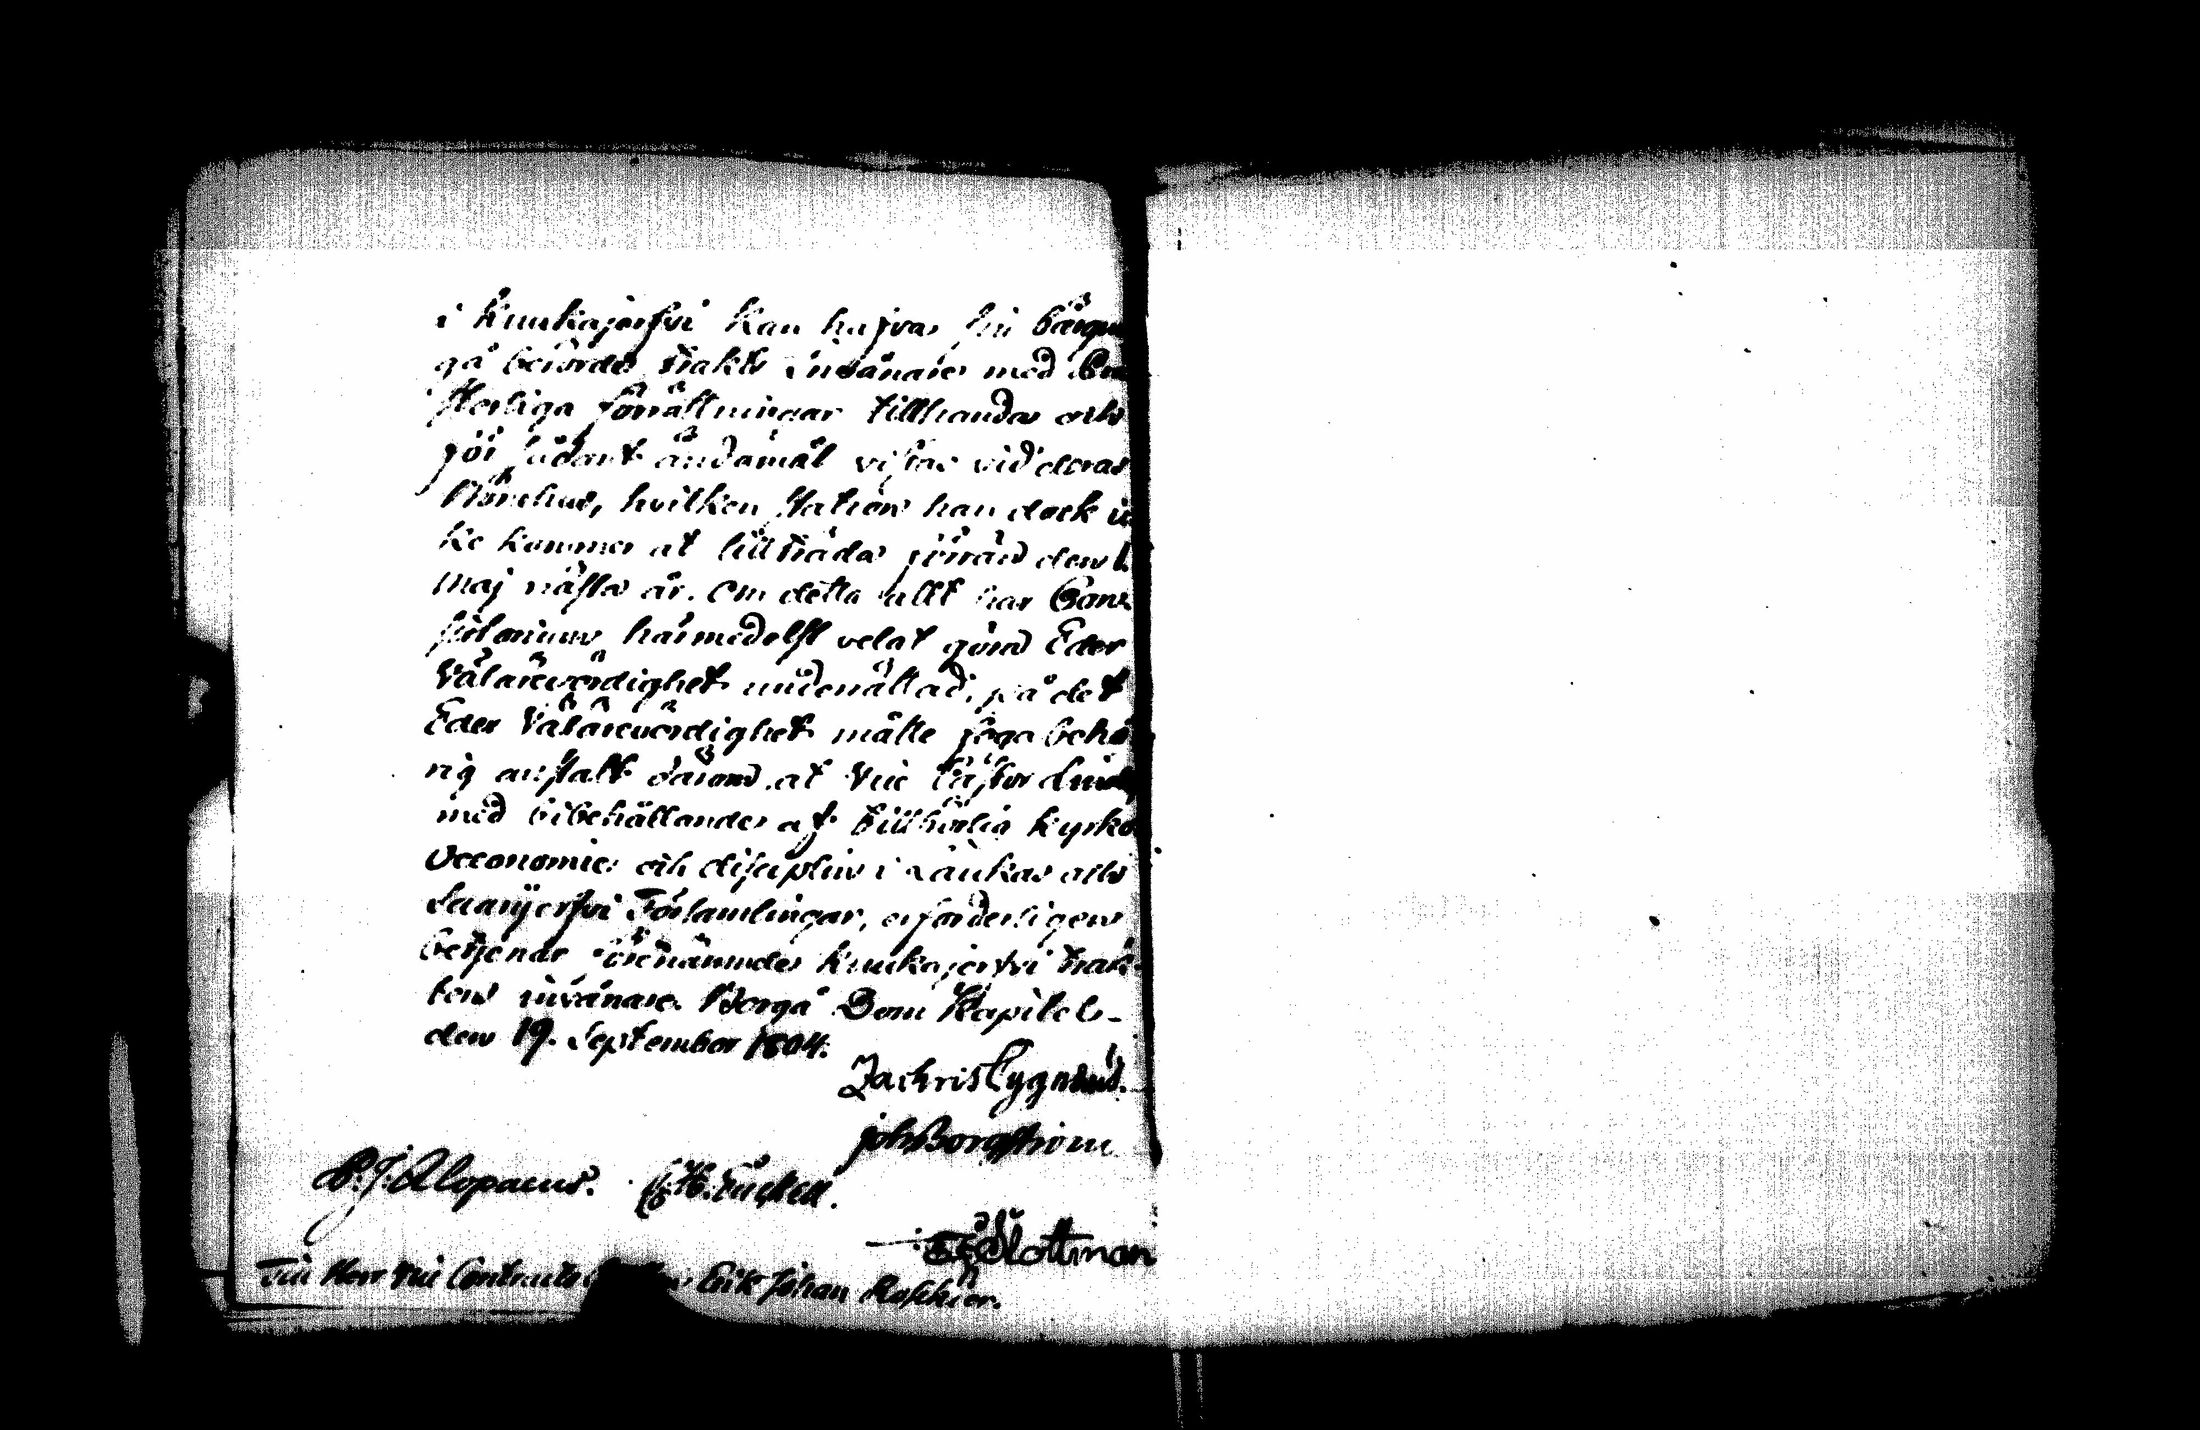 i Kuukajerfvi kan hafva sin bärgn
gå berörde trakts invånare med Pre
sterliga förrättningar tillhanda och
för sådant ändamål vistas vid deras
Bönehus, hvilken Station han dock ic
ke kommer at tillträda förrän den 1.
Maj nästa år. Om detta allt har Con
sistorium härmedelst velat göra Eder
Välärevördighet underrättad, på det
Eder Välärevördighet måtte foga behö
rig anstalt därom at Vice Pastor
med bibehållande af tillbörlig kyrko
oeconomie och disciplin i Laukas och
Saarijerfvi Församlingar, erforderligen
betjenar förenämnde Kuukajerfvi trak-
tens invånare. Borgå Dom Kapitel-
den 19. September 1804.
Zachris Cygnæus.
Joh Borgström
P. J. Alopaeus.
Slottman
Til Herr Vice Contracts Erik Johan Roschier.